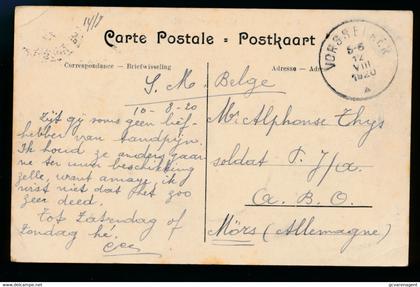 14/8
Carte Postale = Postkaart
Correspondance — Briefwisseling
Adresse — Adres
VORSSELAER
5-6
12
VIII
1920
S. M. Belge
10-8-20
Zijt gij soms geen lief-
hebber van tandpijn.
Ik houd ze anders gaar-
ne ter uwer beschikking
zelle, want amaai, ik
wist niet dat het zoo
zeer deed.
Tot Zaterdag of
Zondag hé.
Mr Alphonse Thys
soldat T.
A. B. O.
Mörs (Allemagne)